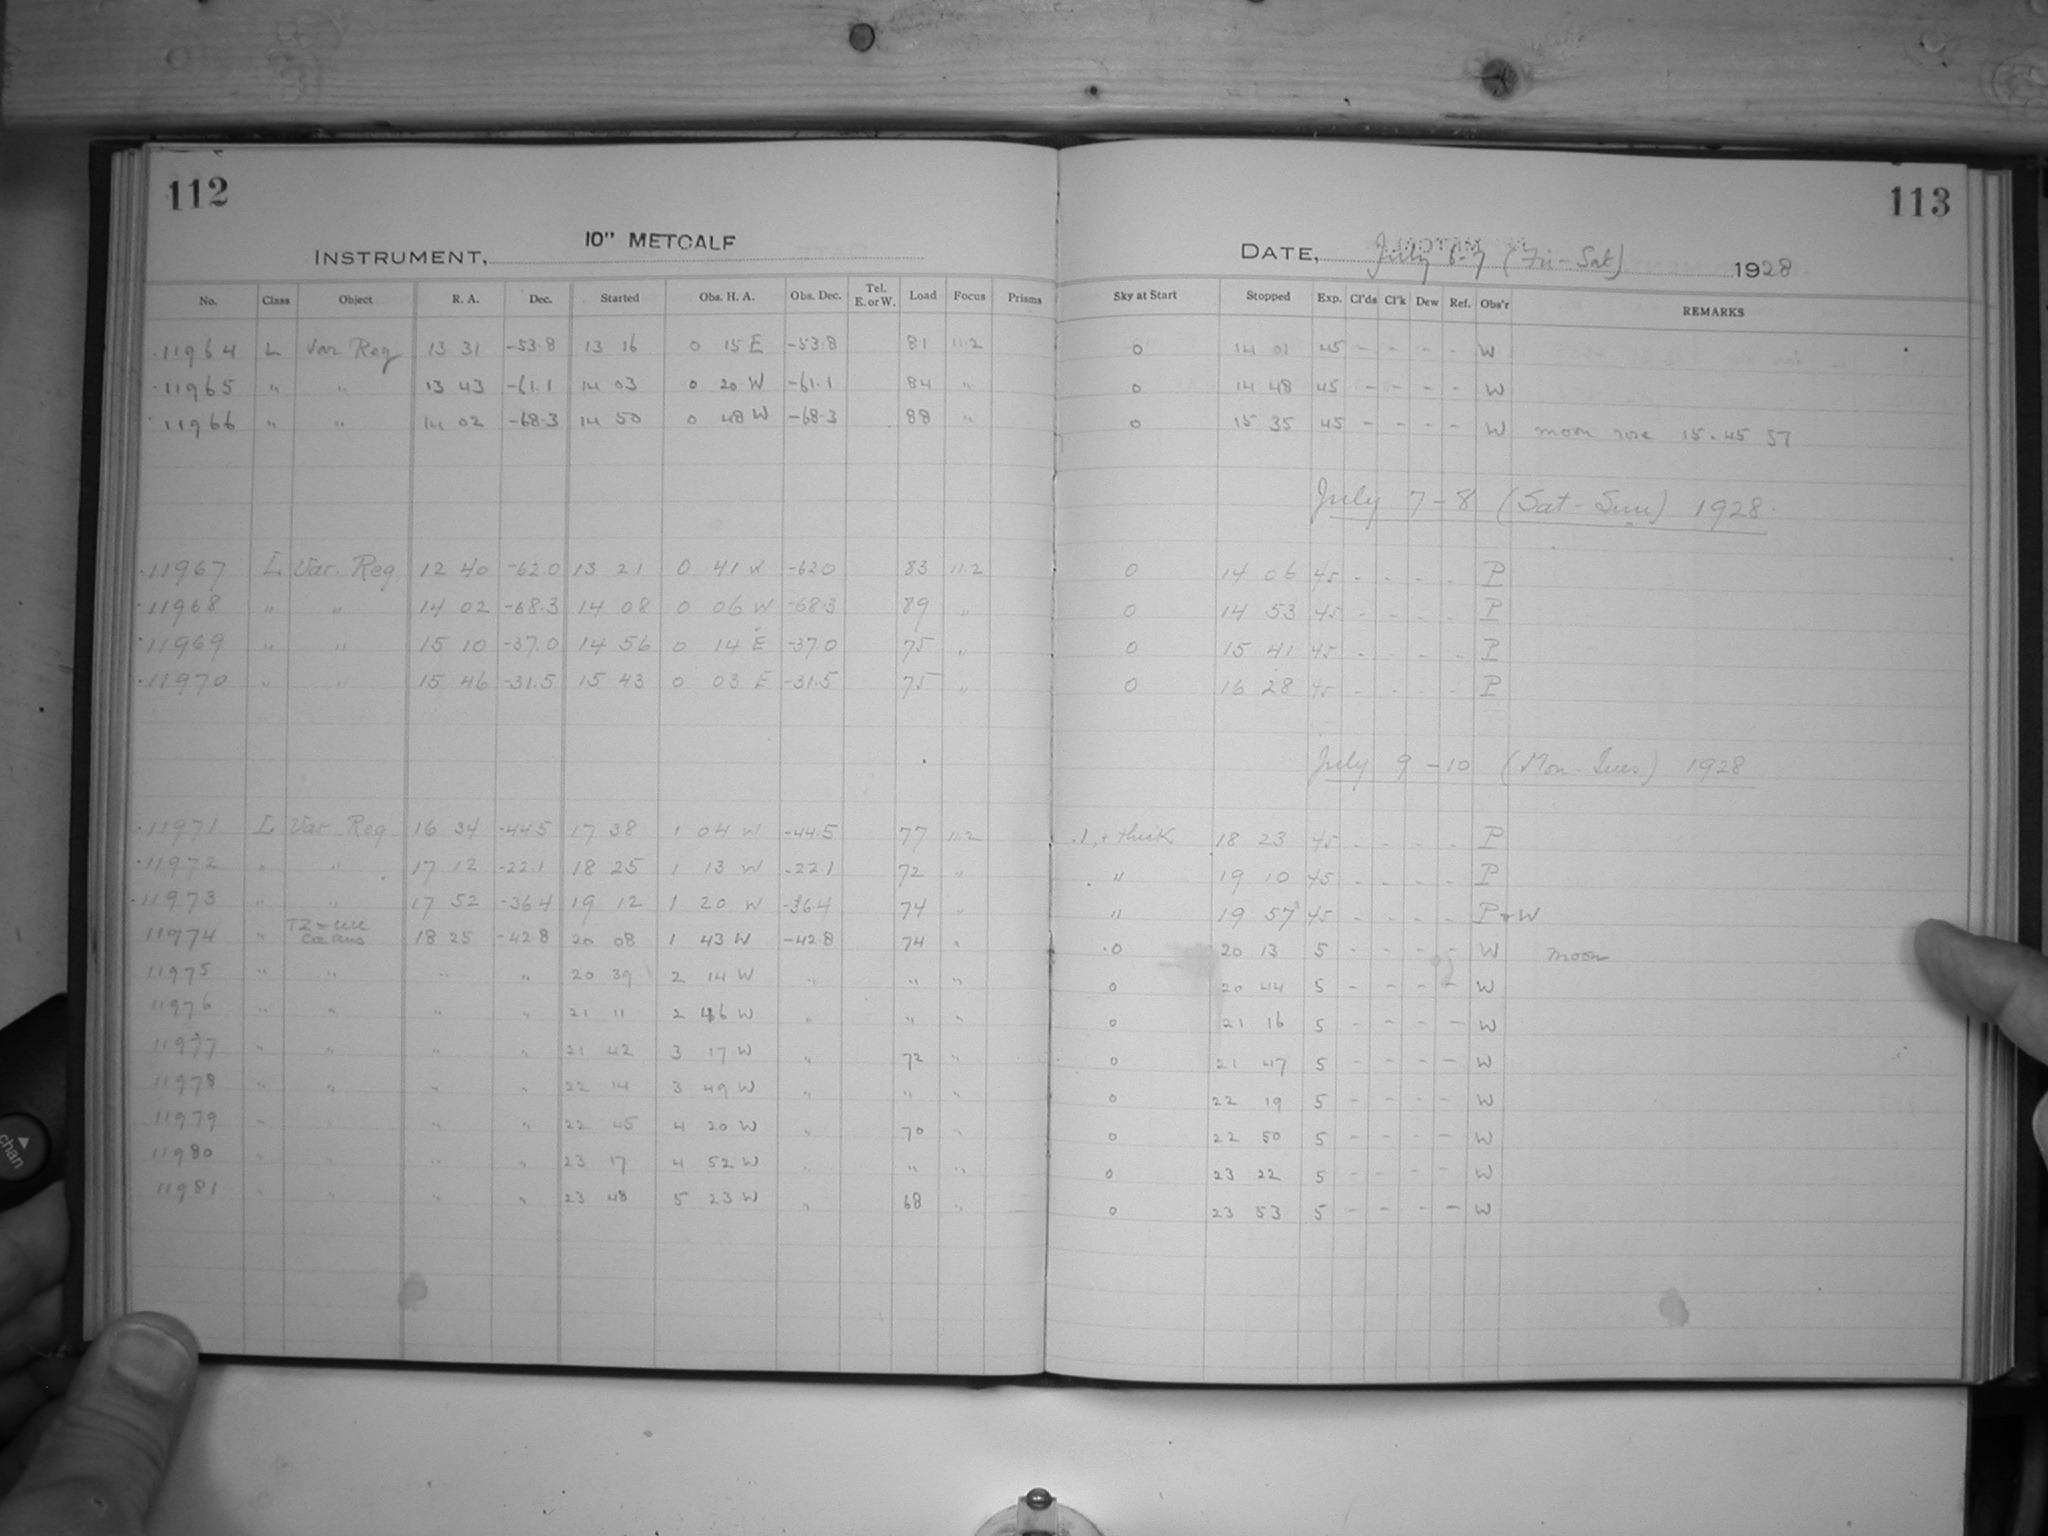 112
113
INSTRUMENT, 10" METCALF
DATE, July 6-7 (Fri-Sat) 1928
No. Class Object R. A. Dec. Started Obs. H. A. Obs. Dec. Tel. E. or W. Load Focus Prisms Sky at Start Stopped Exp. Cl'ds Cl'k Dew Ref. Obs'r REMARKS
11964 L Var Reg 13 31 -53.8 13 16 0 15 E -53.8 81 11.2 0 14 01 45 - - - - W
11965 " " 13 43 -61.1 14 03 0 20 W -61.1 84 " 0 14 48 45 - - - - W
11966 " " 14 02 -68.3 14 50 0 48 W -68.3 88 " 0 15 35 45 - - - - W moon rose 15.45 ST
July 7-8 (Sat-Sun) 1928.
11967 L Var. Reg 12 40 -62.0 13 21 0 41 W -62.0 83 11.2 0 14 06 45 - - - - P
11968 " " 14 02 -68.3 14 08 0 06 W -68.3 89 " 0 14 53 45 - - - - P
11969 " " 15 10 -37.0 14 56 0 14 E -37.0 75 " 0 15 41 45 - - - - P
11970 " " 15 46 -31.5 15 43 0 03 E -31.5 75 " 0 16 28 45 - - - - P
July 9-10 (Mon-Tues) 1928
11971 L Var Reg 16 34 -44.5 17 38 1 04 W -44.5 77 11.2 .1, + thick 18 23 45 - - - - P
11972 " " 17 12 -22.1 18 25 1 13 W -22.1 72 " " 19 10 45 - - - - P
11973 " " 17 52 -36.4 19 12 1 20 W -36.4 74 " " 19 57 45 - - - - P+W
11974 " 18 25 -42.8 20 08 1 43 W -42.8 74 " 0 20 13 5 - - - - W moon
11975 " " " " 20 39 2 14 W " " " 0 20 44 5 - - - - W
11976 " " " " 21 11 2 46 W " " " 0 21 16 5 - - - - W
11977 " " " " 21 42 3 17 W " 72 " 0 21 47 5 - - - - W
11978 " " " " 22 14 3 49 W " " " 0 22 19 5 - - - - W
11979 " " " " 22 45 4 20 W " 70 " 0 22 50 5 - - - - W
11980 " " " " 23 17 4 52 W " " " 0 23 22 5 - - - - W
11981 " " " " 23 48 5 23 W " 68 " 0 23 53 5 - - - - W
chan